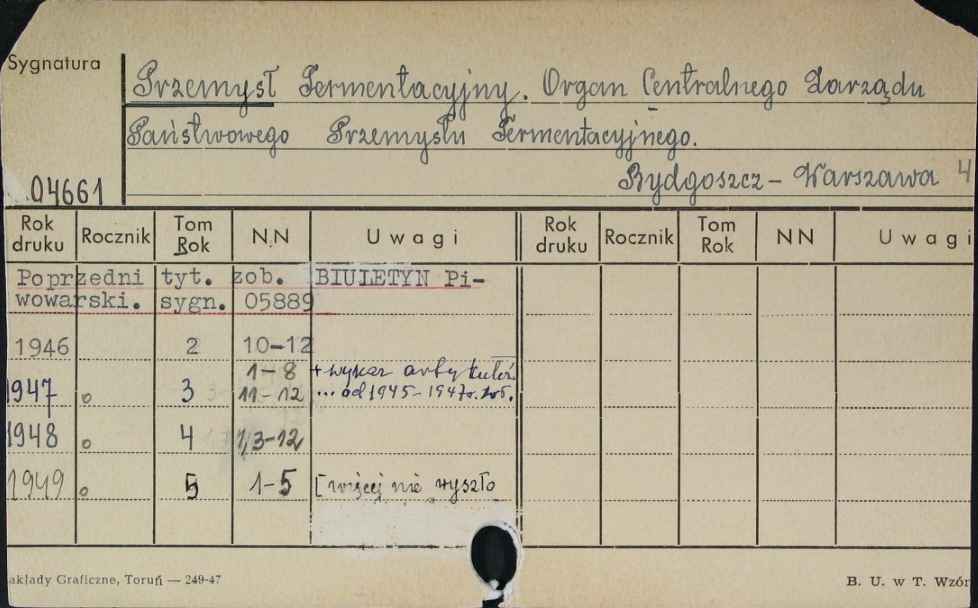 Sygnatura
Przemysł Fermentacyjny. Organ Centralnego Zarządu
Państwowego Przemysłu Fermentacyjnego.
Bydgoszcz - Warszawa 4
04661
Rok druku Rocznik Tom Rok N.N Uwagi Rok druku Rocznik Tom Rok NN Uwagi
Poprzedni tyt. zob. BIULETYN Pi-
wowarski. sygn. 05889
1946 2 10-12
1947 o 3 1-8 + wykaz artykułów
11-12 ... od 1945-1947r.
1948 o 4 1,3-12
1949 o 5 1-5 [więcej nie wyszło
akłady Graficzne, Toruń — 249-47
B. U. w T. Wzór